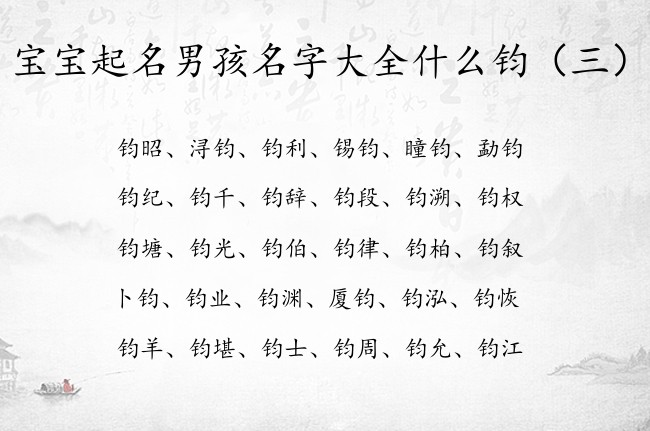 宝宝起名男孩名字大全什么钧（三）
钧昭、浔钧、钧利、锡钧、瞳钧、勐钧
钧纪、钧千、钧辞、钧段、钧溯、钧权
钧塘、钧光、钧伯、钧律、钧柏、钧叙
卜钧、钧业、钧渊、厦钧、钧泓、钧恢
钧羊、钧堪、钧士、钧周、钧允、钧江